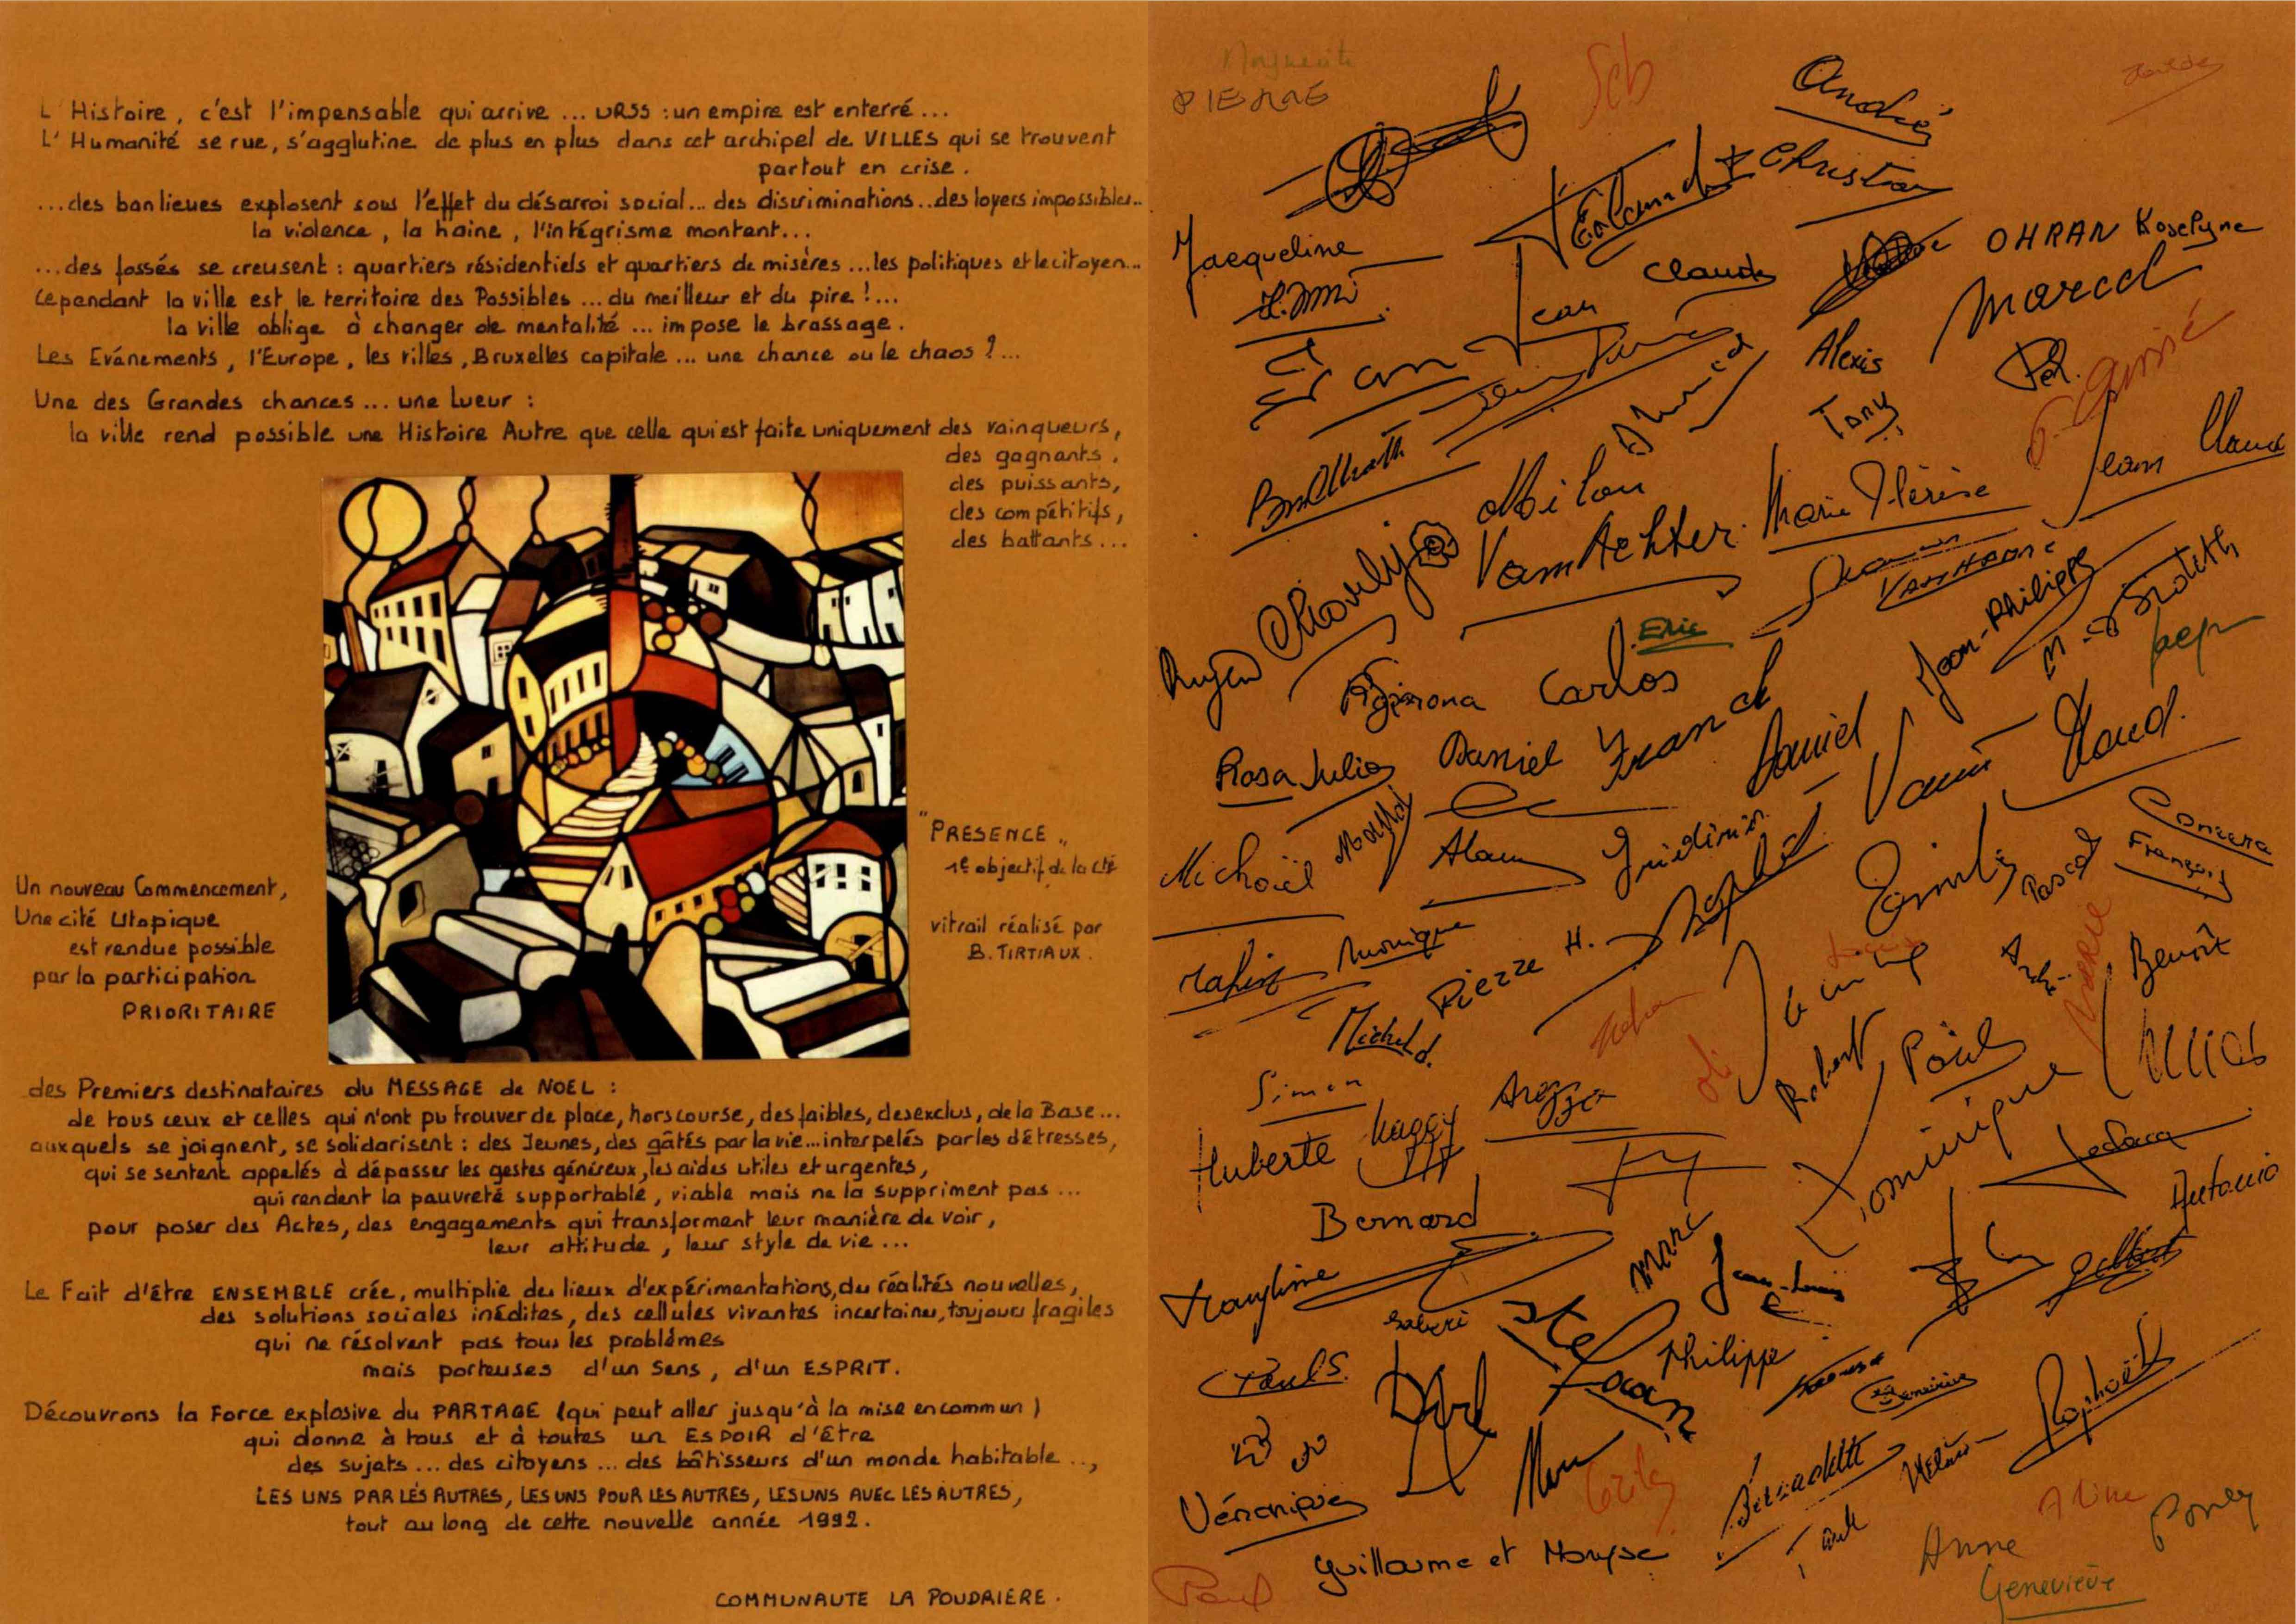 L'Histoire, c'est l'impensable qui arrive ... URSS : un empire est enterré ...
L'Humanité se rue, s'agglutine de plus en plus dans cet archipel de VILLES qui se trouvent
partout en crise.
...des banlieues explosent sous l'effet du désarroi social... des discriminations.. des loyers impossibles..
la violence, la haine, l'intégrisme montent...
...des fossés se creusent : quartiers résidentiels et quartiers de misères ...les politiques et le citoyen...
Cependant la ville est le territoire des Possibles ... du meilleur et du pire !...
la ville oblige à changer de mentalité ... impose le brassage.
Les Evénements, l'Europe, les villes, Bruxelles capitale ... une chance ou le chaos ?...
Une des Grandes chances ... une Lueur :
la ville rend possible une Histoire Autre que celle qui est faite uniquement des vainqueurs,
des gagnants,
des puissants,
des compétitifs,
des battants ...
"PRESENCE"
1e objectif de la Cté
vitrail réalisé par
B. TIRTIAUX.
Un nouveau Commencement,
Une cité Utopique
est rendue possible
par la participation
PRIORITAIRE
des Premiers destinataires du MESSAGE de NOEL :
de tous ceux et celles qui n'ont pu trouver de place, hors course, des faibles, des exclus, de la Base ...
auxquels se joignent, se solidarisent : des Jeunes, des gâtés par la vie... interpelés par les détresses,
qui se sentent appelés à dépasser les gestes généreux, les aides utiles et urgentes,
qui rendent la pauvreté supportable, viable mais ne la suppriment pas ...
pour poser des Actes, des engagements qui transforment leur manière de voir,
leur attitude, leur style de vie ...
Le Fait d'être ENSEMBLE crée, multiplie des lieux d'expérimentations, du réalités nouvelles,
des solutions sociales inédites, des cellules vivantes incertaines, toujours fragiles
qui ne résolvent pas tous les problèmes
mais porteuses d'un Sens, d'un ESPRIT.
Découvrons la Force explosive du PARTAGE (qui peut aller jusqu'à la mise en commun)
qui donne à tous et à toutes un ESPOIR d'Etre
des sujets ... des citoyens ... des bâtisseurs d'un monde habitable ..,
LES UNS PAR LES AUTRES, LES UNS POUR LES AUTRES, LES UNS AVEC LES AUTRES,
tout au long de cette nouvelle année 1992.
COMMUNAUTE LA POUDRIERE.
Marguerite
PIERRE
Seb
André
Christian
Jacqueline
OHRAN Roselyne
Claude
Jean
Marcel
Alexis
Tony
Jean Claude
Milou
VanAchter
Marie Thérèse
Charly
Eric
Jean-Philippe
Carlos
Rosa Julia
Daniel
Franck
Daniel
Maud.
Michaël
Alain
Emily
Pascal
François
Monique
Pierre H.
Benoît
Marie
Michel d.
Simon
Robert
Oli
Huberte
Maggy
Dominique
Bernard
Antonio
Marc
Jean-Louis
Gilbert
Stefaan
Philippe
Paul S.
Geneviève
Raphaël
Véronique
Bernadette
Aline
Guillaume et Maryse
Anne
Geneviève
Paul